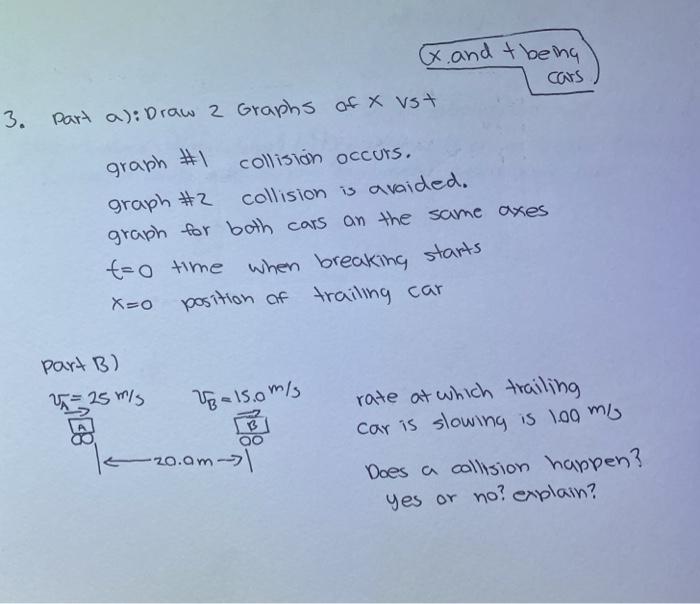 (x.and t being
cars)
3. Part a): Draw 2 Graphs of x vs t
graph #1 collision occurs.
graph #2 collision is avaided.
graph for both cars an the same axes
t=0 time when breaking starts
x=0 position of trailing car
Part B)
V_A = 25 m/s V_B = 15.0 m/s
A B
20.0m
rate at which trailing
car is slowing is 1.00 m/s
Does a collision happen?
yes or no? explain?